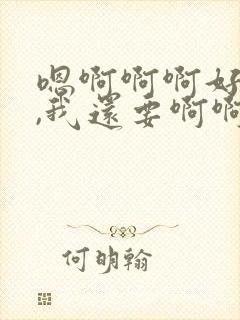 嗯啊啊啊好
,我还要啊啊
何明翰